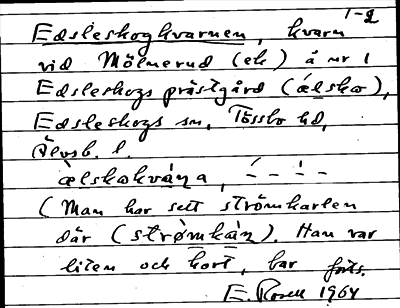 1-2
Edsleskogkvarnen, kvarn
vid Mölnerud (ek) å nr 1
Edsleskogs prästgård (ælsko),
Edsleskogs sn, Tössbo hd,
Älvsb. l.
ælskokvána, – – –
(Man har sett strömkarlen
där (strømkàn). Han var
liten och kort, bar forts.
E. Rosell 1964